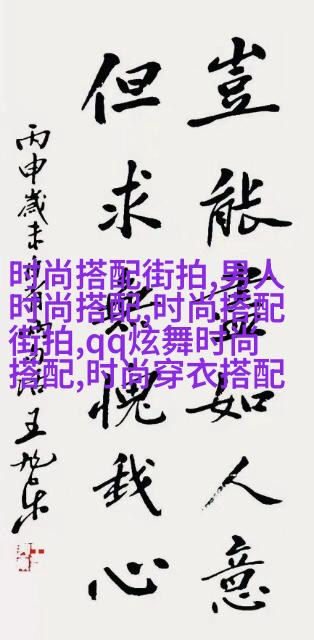 豈能盡如人意
但求無愧我心
丙申歲末 王旭东
时尚搭配街拍,男人
时尚搭配,时尚搭配
街拍,qq炫舞时尚
搭配,时尚穿衣搭配